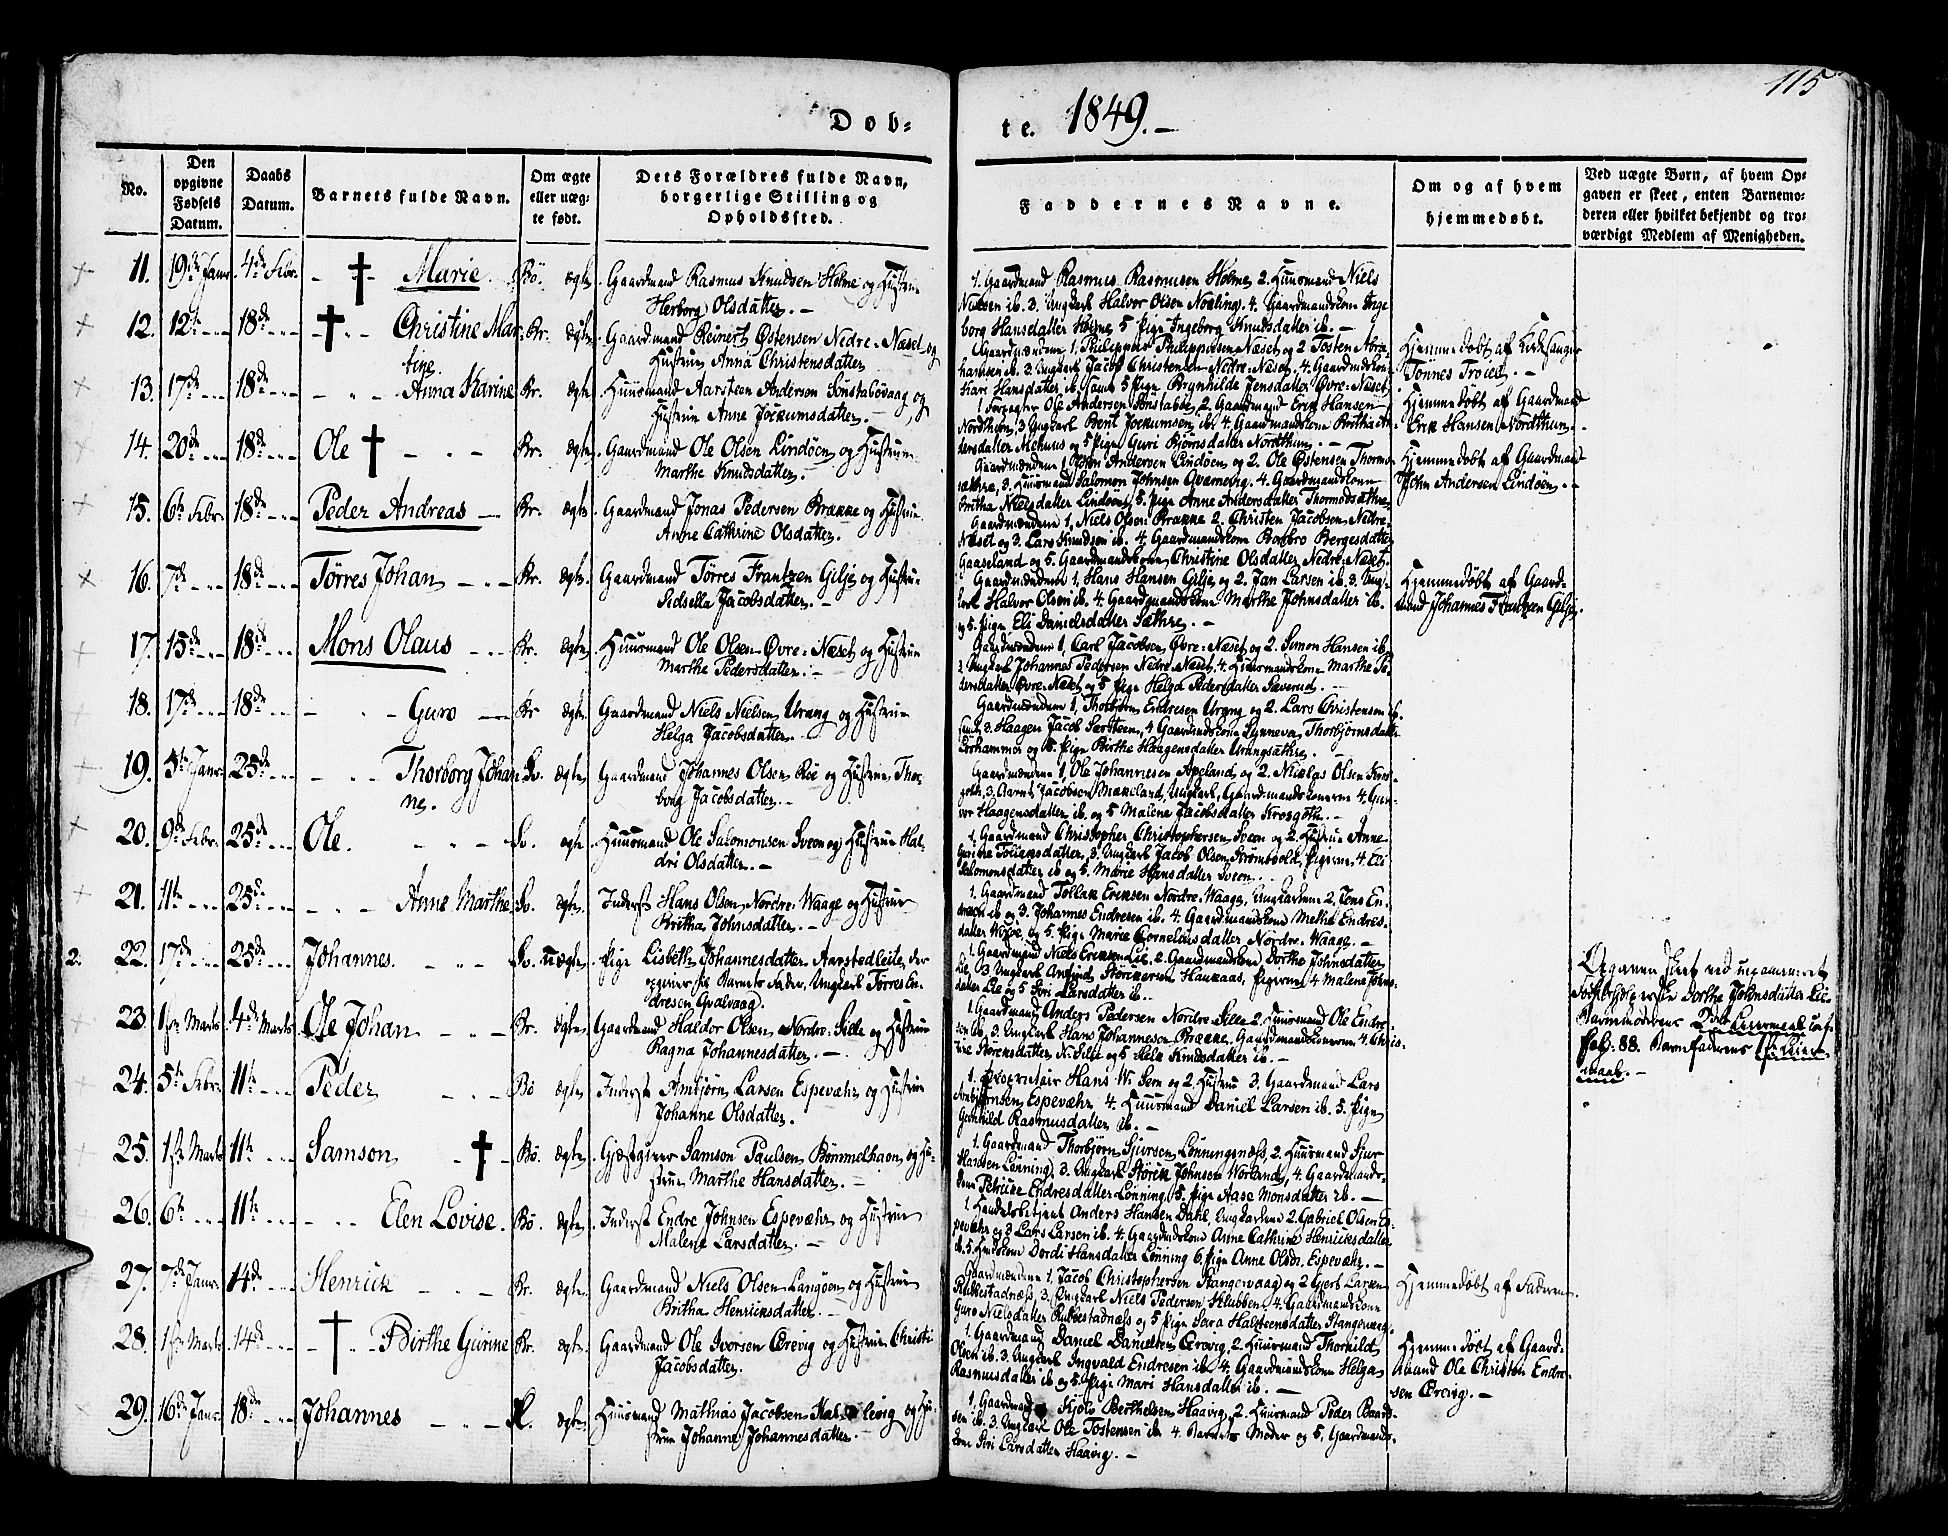 115
Døb-
te. 1849.-
No.
Den opgivne Fødsels Datum.
Daabs Datum.
Barnets fulde Navn.
Om ægte eller uæg-te født.
Dets Forældres fulde Navn, borgerlige Stilling og Opholdssted.
Faddernes Navne.
Om og af hvem hjemmedøbt.
Ved uægte Børn, af hvem Op-
gaven er skeet, enten Barnemo-
deren eller hvilket bekjendt og tro-
værdigt Medlem af Menigheden.
11. 19de Janr. 4de Febr. Marie Bö. ægte. Gaardmand Rasmus Knudsen Holme og Hustrue
Herborg Olsdatter. -
1. Gaardmand Rasmus Rasmusen Holme 2. Huusmand Niels
Nielsen ib. 3. Ungkarl Halvor Olsen Nosling. 4. Gaardmandskone Inge
borg Hansdatter Holme 5 Pige Ingeborg Knudsdatter ib. -
12. 12te 18de Christine Mar
tine. Br. ægte. Gaardmand Reinert Østensen Nedre-Næset og
Hustrue Anna Christensdatter
Gaardmændene 1. Philippus Philippusen Næset og 2 Tosten Abra-
hamsen ib. 3. Ungkarl Jacob Christensen Nedre-Næset, 4. Gaardmandskone
Kari Hansdatter ib. samt 5 Pige Brynhilde Jensdatter Øvre-Næset
Hjemmedöbt af Kirkesanger
Tönnes Troied. -
13. 17de 18de Anna Karine Br. ægte. Huusmand Aarsteen Andersen Sønstabøvaag og
Hustrue Anne Jockumsdatter. -
1 Forpagter Ole Andersen Sønstabøe, 2 Gaardmand Erik Hansen
Nordthun, 3 Ungkarl Bent Jockumsen ib. 4. Gaardmandskone Britha An
dersdatter Mehuus og 5 Pige Guri Bjørnsdatter Nordthun. -
Hjemmedöbt af Gaardmand
Erik Hansen Nordthun.
14. 20de 18de Ole Br. ægte. Gaardmand Ole Olsen Lindöen og Hustrue
Marthe Knudsdatter. -
Gaardmændene 1 John Andersen Lindöen og 2. Ole Østensen Thormo
sæthre, 3. Huusmand Salomon Johnsen Qvernevig. 4. Gaardmandskone
Britha Nielsdatter Lindöen, 5. Pige Anne Andersdatter Thormodsæthre.
Hjemmedöbt af Gaardmand
John Andersen Lindöen. -
15. 6te Febr. 18de Peder Andreas Br. ægte. Gaardmand Jonas Pedersen Brække og Hustrue
Anne Cathrine Olsdatter.
Gaardmændene 1. Niels Olsen Brække 2. Christen Jacobsen Nedre-
Næset og 3. Lars Knudsen ib. 4. Gaardmandskone Barbro Bergesdatter
Gaaseland og 5. Gaardmandskone Christine Olsdatter Nedre-Næset.
16. 7de 18de Törres Johan Br. ægte. Gaardmand Törres Frantzen Gilje og Hustrue
Sidsella Jacobsdatter. -
Gaardmændene 1, Hans Hansen Gilje og 2. Jan Larsen ib. 3. Ung-
karl Halvor Olsen ib. 4. Gaardmandskone Marthe Johnsdatter ib.
og 5. Pige Eli Danielsdatter Sæthre. -
Hjemmedöbt af Gaard-
mand Johannes Frantzen Gilje.
17. 15de 18de Mons Olaus Br. ægte Huusmand Ole Olsen Øvre-Næset og Hustrue
Marthe Pedersdatter. -
Gaardmændene 1, Carl Jacobsen Øvre-Næset og 2. Simon Hansen ib.
3. Ungkarl Johannes Pedersen Nedre-Næset 4. Huusmandskone Marthe Pe-
dersdatter Øvre-Næset og 5 Pige Helga Pedersdatter Sæverud. -
18. 17de 18de Guro Br ægte. Gaardmand Niels Nielsen Urang og Hustrue
Helga Jacobsdatter.
Gaardmændene 1, Thorbjörn Endresen Urang og 2. Lars Christensen ib.
samt 3. Haagen Jacob Sørsteen, 4 Gaardmandskone Synneva Thorbjörnsdatter
og 5. Pige Birthe Haagensdatter Urangsæthre.
19. 5te Janr. 25de Thorborg Johan
ne. Sv. ægte. Gaardmand Johannes Olsen Röe og Hustrue Thor-
borg Jacobsdatter. -
Gaardmændene 1. Ole Johannesen Apeland og 2. Nicolas Olsen Kros-
goth, 3. Barne Jacobsen Mækeland, Ungkarl, Gaardmandskonerne 4. Gun-
vor Haagensdatter ib. og 5 Malene Jacobsdatter Krosgoth. -
20. 9de Febr. 25de Ole. Sv. ægte. Huusmand Ole Salomonsen Sveen og Hustrue Hal-
dri Olsdatter. -
1. Gaardmand Christopher Christophersen Sveen og 2. Hustrue Anne
3. Ungkarl Jacob Olsen Strömsvold, Pigerne 4. Eli
Salomonsdatter ib og 5. Marie Hansdatter Sveen.
21. 11te 25de Anne Marthe Sv. ægte. Inderst Hans Olsen Nordre-Waage og Hustrue
Britha Johnsdatter. -
1. Gaardmand Tollak Ericksen Nordre-Waage, Ungkarlene 2. Jens En
dresen ib og 3. Johannes Endresen ib. 4. Gaardmandskone Metha Endres-
datter og 5. Pige Marie Cornelausdatter Nordre-Waage. -
2. 22. 17de 25de Johannes. Sv. uægte. Pige Lisbeth Johannesdatter Aarstadleite, der
opgiver til Barnets Fader, Ungkarl Törres En-
dresen Gvalvaag.
1. Gaardmand Niels Ericksen Lie, 2. Gaardmandskone Dorthe Johnsdatter
Lie, 3 Ungkarl Anfind Störkersen Haukaas, Pigerne 4 Malene Johns-
datter Lie og 5 Siri Larsdatter ib.
Opgaven skeet ved examineret
Dorthe Johnsdatter Lie
Barnemoderens 2det Leiermaal
fol. 88. Barnefaderens 1ste Leier-
maal. -
23. 1ste Marts 4de Marts Ole Johan Br. ægte. Gaardmand Haldor Olsen Nordre-Sille og Hustrue
Ragna Johannesdatter. -
1. Gaardmand Anders Pedersen Nordre-Sille 2. Huusmand Ole Endre-
sen ib. 3. Ungkarl Hans Johannesen Brække Gaardmandskonerne 4. Chris-
tine Störksdatter N. Sille og 5 Hele Knudsdatter ib. -
24. 5te Febr. 11te Peder Bö ægte Inderst Ambjörn Larsen Espevæhr og Hustrue
Johanne Olsdatter.
1. Proprietair Hans W. Sem og 2. Hustrue 3. Gaardmand Lars
Ambjörnsen Espevæhr 4. Huusmand Daniel Larsen ib. 5. Pige
Gunhild Rasmusdatter ib. -
25. 1ste Marts 11te Samson Bö. ægte. Gjæstgiver Samson Paulsen Bömmelhavn og Hu-
strue Marthe Hansdatter. -
1. Gaardmand Thorbjörn Sjursen Lönningsnæss, 2. Huusmand Sjur
Hansen Lönning, 3. Ungkarl Störck Johnsen Vorland, 4. Gaardmands-
kone Petrikke Endresdatter Lönning, 5. Pige Aase Monsdatter ib. -
26. 6te 11te Elen Lovise. Bö. ægte. Inderst Endre Johnsen Espevæhr og Hustrue
Malene Larsdatter. -
1. Handelsbetjent Anders Hansen Dahl, Ungkarlene 2. Gabriel Olsen Es-
pevæhr og 3 Lars Larsen ib. 4. Gaardmandskone Anne Cathrine Henricksdatter
ib. 5. Dordi Hansdatter Lönning 6. Pige Anne Olsdr. Espevæhr. -
27. 7de Janr. 14de Henrick Br. ægte. Gaardmand Niels Olsen Langöen og Hustrue
Britha Henricksdatter. -
Gaardmændene 1. Jacob Christophersen Stangervaag og 2 Gjert Larsen
Rubbestadnæss, 3. Ungkarl Niels Pedersen Klubben, 4. Gaardmandskone
Guro Nielsdatter Rubbestadnæss og 5 Pige Sara Halsteensdatter Stangervaag.
Hjemmedöbt af Faderen.
28. 1ste Marts 14de Birthe Gurine Br. ægte. Gaardmand Ole Iversen Ørevig og Hustrue Christi
Jacobsdatter.
1. Gaardmand Daniel Danielsen Ørevig, 2. Huusmand Thorkild
Olsen ib. 3. Ungkarl Ingvald Endresen ib. 4. Gaardmandskone Helga
Rasmusdatter ib og 5. Pige Mari Hansdatter ib. -
Hjemmedöbt af Gaard-
mand Ole Christen Endre-
sen Ørevig. -
29. 16de Janr. 18de Johannes ægte. Huusmand Mathias Jacobsen og Hu-
strue Johanne Johannesdatter. -
1. Gaardmand Kjöls Berthelsen Haavig, 2. Huusmand Peder Baard-
sen ib. 3. Ungkarl Ole Tostensen ib. 4. Barnets Moder og 5. Gaardmands-
kone Siri Larsdatter Haavig. -